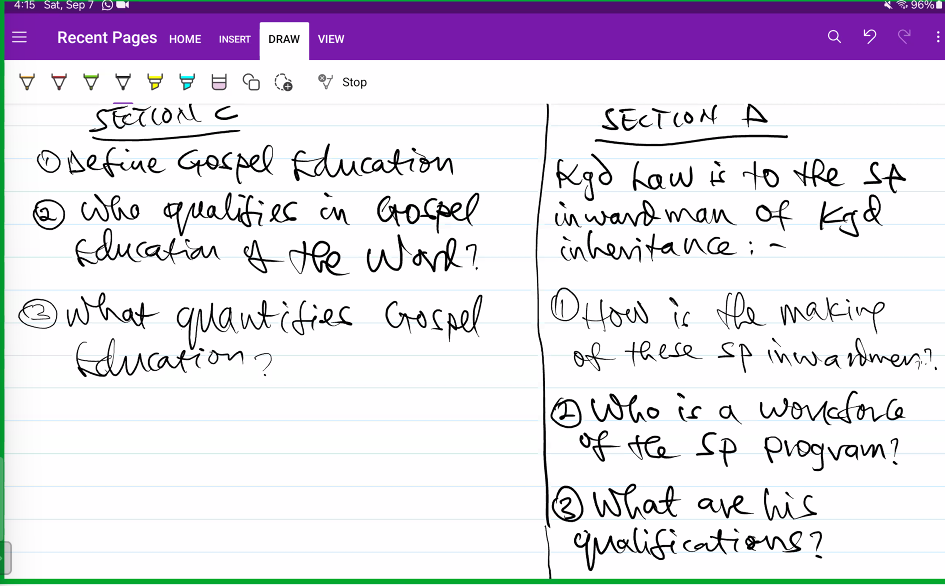 4:15 Sat, Sep 7
96%
Recent Pages HOME INSERT DRAW VIEW
Stop
SECTION C
① Define Gospel Education
② Who qualifies in Gospel
Education of the Word?
③ What quantifies Gospel
Education?
SECTION A
Kgd Law is to the
inwardman of Kgd
inheritance : -
① How is the making
of these sp inwardmen?
② Who is a workforce
of the Sp program?
③ What are his
qualifications?